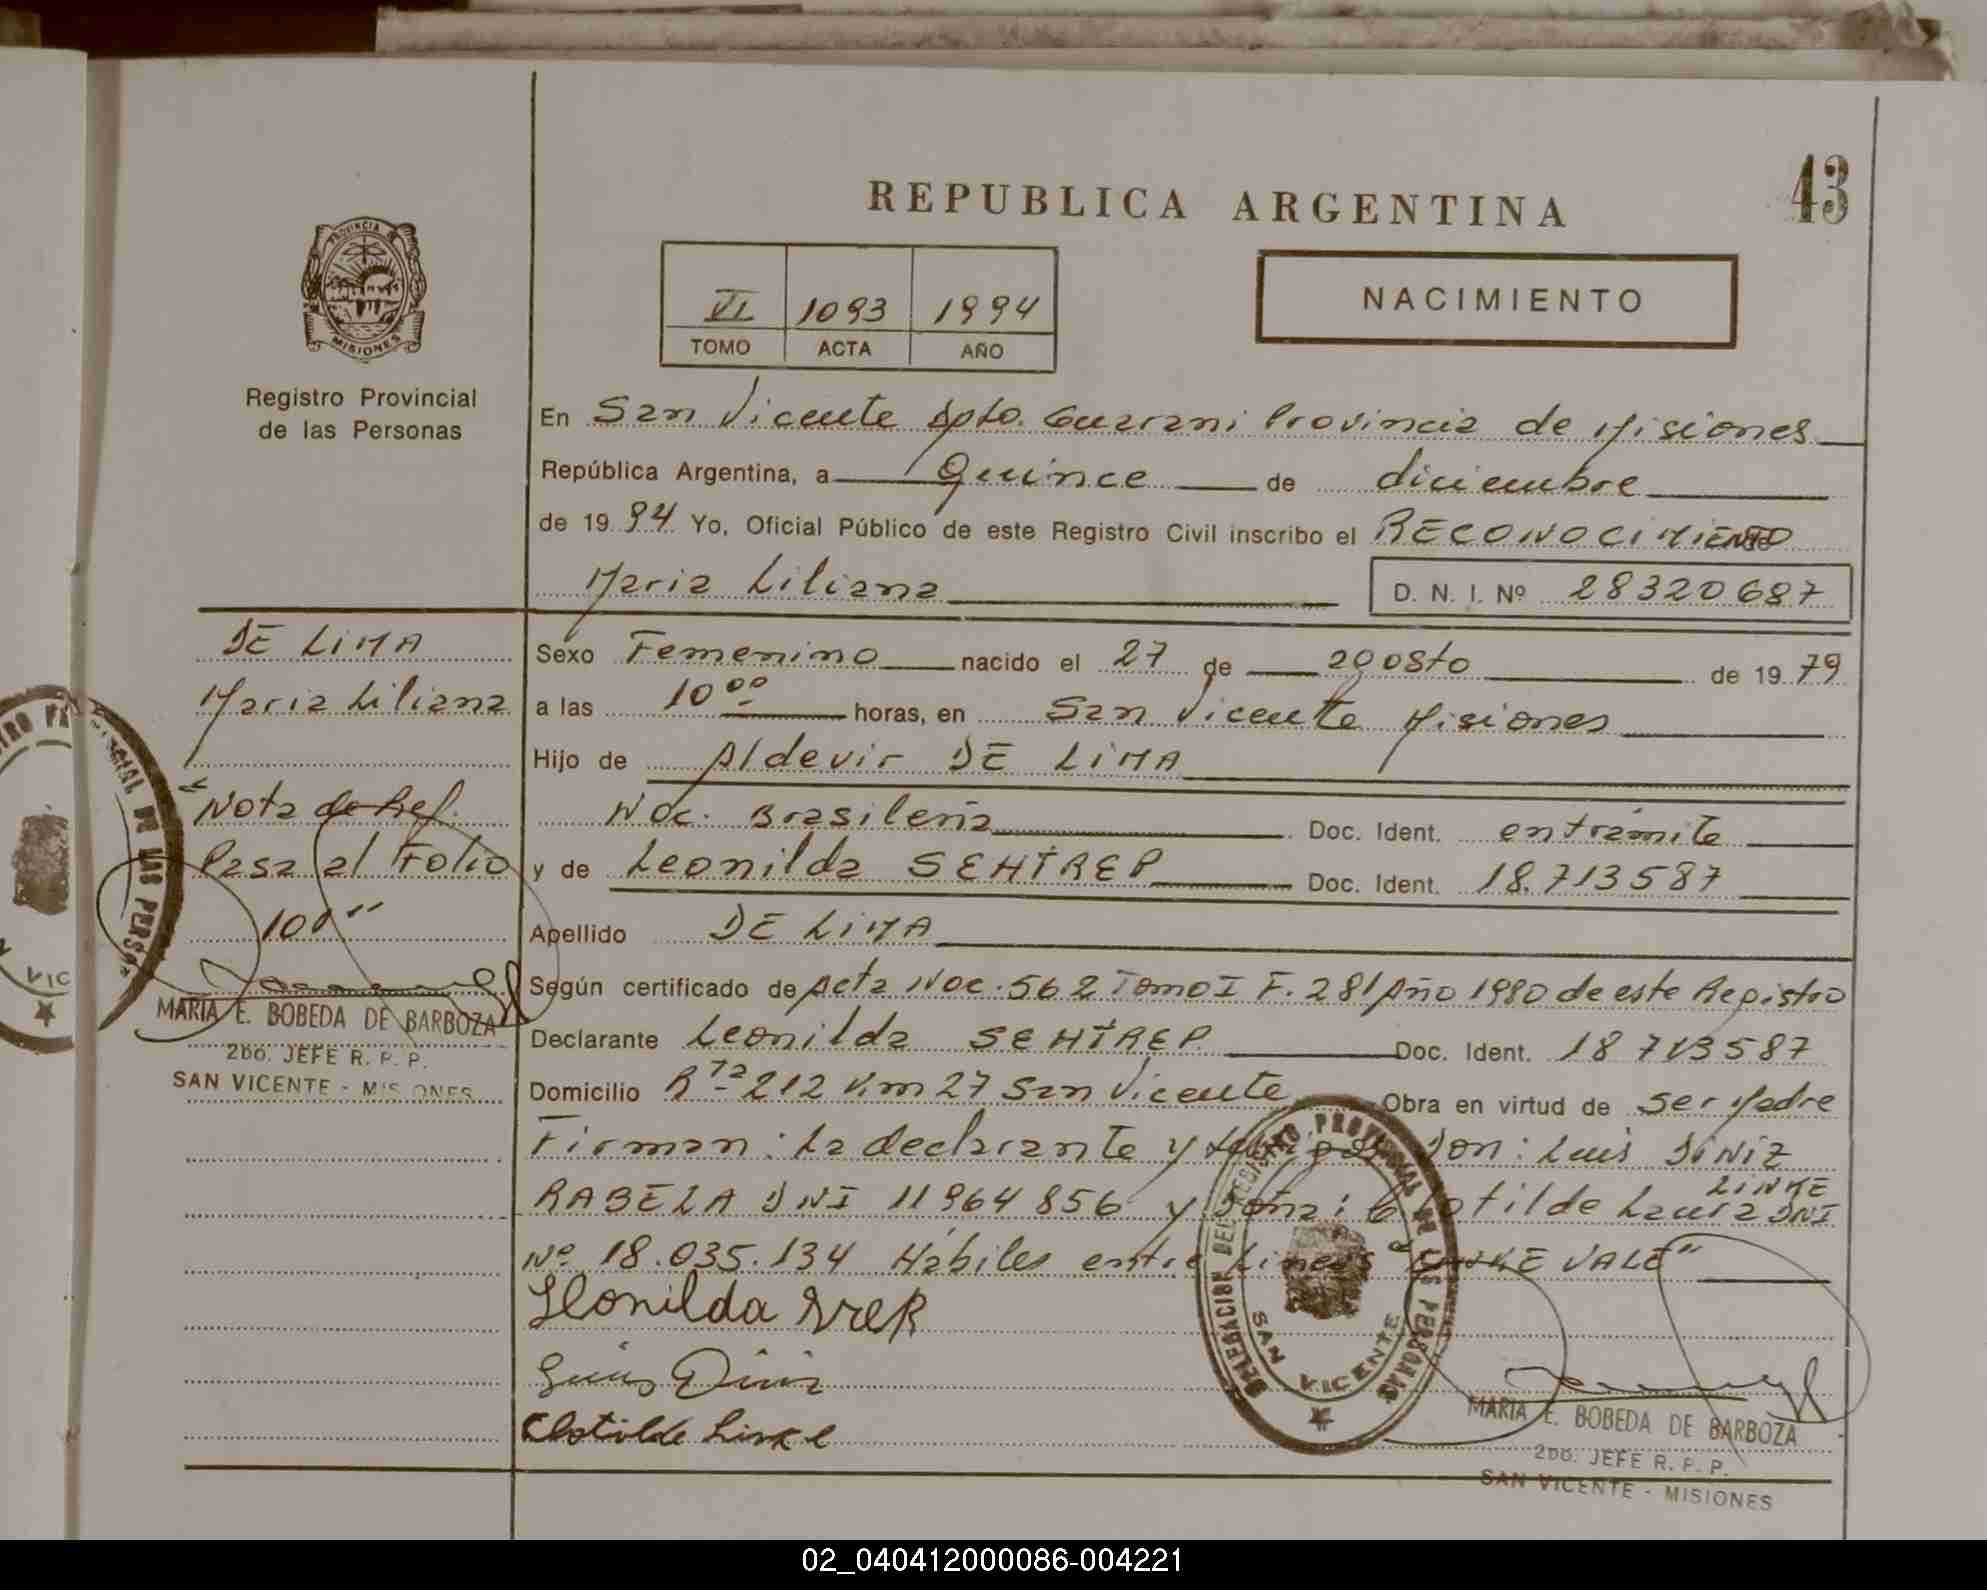 43
REPUBLICA ARGENTINA
PROVINCIA DE
MISIONES
VI 1093 1994
TOMO ACTA AÑO
NACIMIENTO
Registro Provincial
de las Personas
En San Vicente Dpto. Guarani Provincia de Misiones
República Argentina, a Quince de diciembre
de 1994 Yo, Oficial Público de este Registro Civil inscribo el RECONOCIMIENTO de
Maria Liliana D. N. I. Nº 28320687
DE LIMA
Maria Liliana
"Nota de Ref.
Pasa al Folio
100"
MARIA E. BOBEDA DE BARBOZA
2DO. JEFE R. P. P.
SAN VICENTE - MISIONES
Sexo Femenino nacido el 27 de agosto de 1979
a las 10 00 horas, en San Vicente Misiones
Hijo de Aldevir DE LIMA
Nac. Brasileña Doc. Ident. entramite
y de Leonilda Doc. Ident. 18.713587
Apellido DE LIMA
Según certificado de Acta Nac. 562 Tomo I F. 281 Año 1980 de este Registro
Declarante Leonilda Doc. Ident. 18 713587
Domicilio R 212 Km 27 San Vicente Obra en virtud de ser Madre
Firman: La declarante y testigos Don: Luis DiNiZ
RABELA DNI 11964856 y Doña: Clotilde Laura LINKE DNI
Nº 18.035.134 Hábiles entre Lineas "LINKE VALE"
Leonilda
Luis Diniz
Clotilde Linke
DELEGACION DEL REGISTRO PROVINCIAL DE LAS PERSONAS
SAN VICENTE
MARIA E. BOBEDA DE BARBOZA
2DO. JEFE R. P. P.
SAN VICENTE - MISIONES
02_040412000086-004221